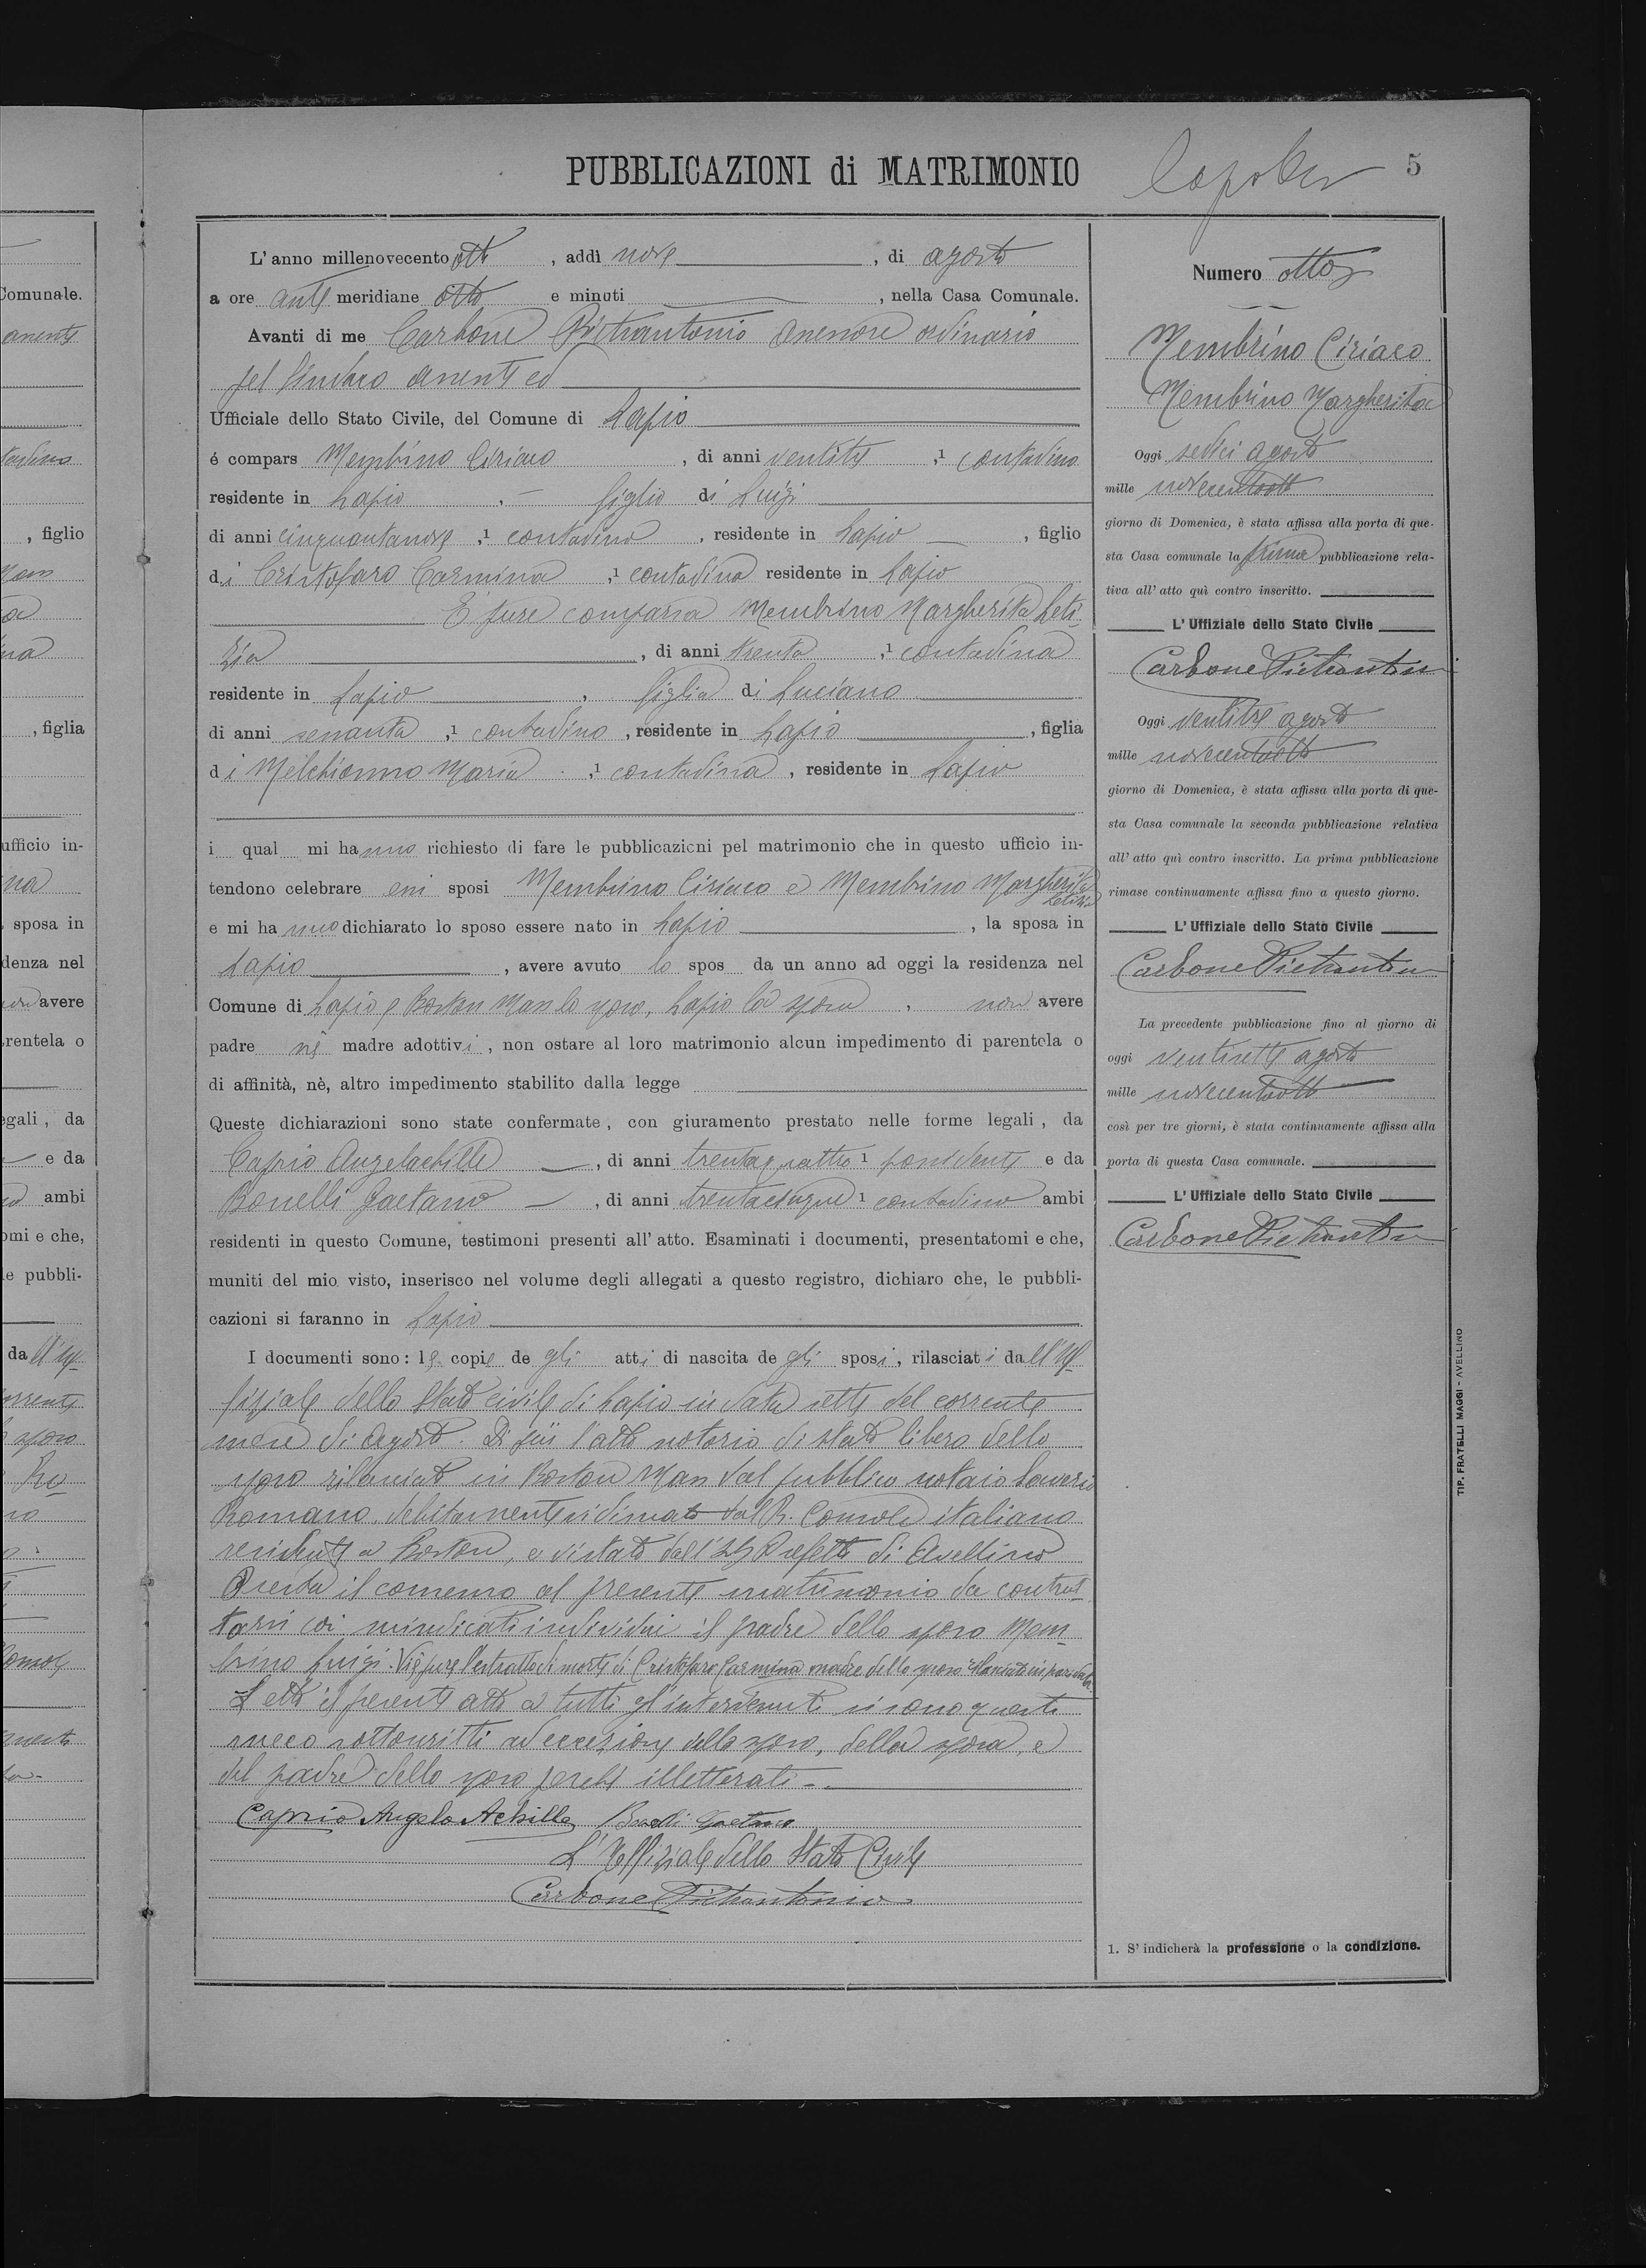 PUBBLICAZIONI di MATRIMONIO
5
L'anno millenovecento otto, addì nove, di agosto
a ore ante meridiane otto e minuti, nella Casa Comunale.
Avanti di me Carbone Pietrantonio assessore ordinario
pel Sindaco assente ed
Ufficiale dello Stato Civile, del Comune di Lapio
é compars Membrino Ciriaco, di anni ventitre, 1 contadino
residente in Lapio, figlio di Luigi
di anni cinquantanove, 1 contadino, residente in Lapio, figlio
di Cristofaro Carmina, 1 contadina residente in Lapio
E' pure comparsa Membrino Margherita Leti-
zia, di anni trenta, 1 contadina
residente in Lapio, figlia di Luciano
di anni sessanta, 1 contadino, residente in Lapio, figlia
di Melchionno Maria, 1 contadina, residente in Lapio
i qual mi hanno richiesto di fare le pubblicazioni pel matrimonio che in questo ufficio in-
tendono celebrare essi sposi Membrino Ciriaco e Membrino Margherita
Letizia
e mi hanno dichiarato lo sposo essere nato in Lapio, la sposa in
Lapio, avere avuto lo spos da un anno ad oggi la residenza nel
Comune di Lapio e Boston Mass lo sposo, Lapio la sposa, non avere
padre nè madre adottivi, non ostare al loro matrimonio alcun impedimento di parentela o
di affinità, nè, altro impedimento stabilito dalla legge
Queste dichiarazioni sono state confermate, con giuramento prestato nelle forme legali, da
Caprio Angelachille, di anni trentaquattro 1 possidente e da
Bonelli Gaetano, di anni trentacinque 1 contadino ambi
residenti in questo Comune, testimoni presenti all'atto. Esaminati i documenti, presentatomi e che,
muniti del mio visto, inserisco nel volume degli allegati a questo registro, dichiaro che, le pubbli-
cazioni si faranno in Lapio
I documenti sono: le copie de gli atti di nascita de gli sposi, rilasciati dall'Uf-
fiziale dello Stato civile di Lapio in data sette del corrente
mese di Agosto. Di più l'atto notorio di stato libero dello
sposo rilasciato in Boston Mass dal pubblico notaio Saverio
Romano debitamente vidimato dal R. Console italiano
residente a Boston, e vistato dall' Prefetto di Avellino
Presta il consenso al presente matrimonio da contrat-
tarsi coi summindicati individui il padre dello sposo Mem-
brino Luigi. Vi è pure l'estratto di morte di Cristofaro Carmina madre dello sposo rilasciato in pari data.
Letto il presente atto a tutti gl'intervenuti si sono questi
meco sottoscritti ad eccezione dello sposo, della sposa, e
del padre dello sposo perchè illetterati.
Caprio Angelo Achille Bonelli Gaetano
L'Uffiziale dello Stato Civile
Carbone Pietrantonio
Numero otto
Membrino Ciriaco
Membrino Margherita
Oggi sedici agosto
mille novecentootto
giorno di Domenica, è stata affissa alla porta di que-
sta Casa comunale la prima pubblicazione rela-
tiva all'atto quì contro inscritto.
L'Uffiziale dello Stato Civile
Carbone Pietrantonio
Oggi ventitre agosto
mille novecentootto
giorno di Domenica, è stata affissa alla porta di que-
sta Casa comunale la seconda pubblicazione relativa
all'atto quì contro inscritto. La prima pubblicazione
rimase continuamente affissa fino a questo giorno.
L'Uffiziale dello Stato Civile
Carbone Pietrantonio
La precedente pubblicazione fino al giorno di
oggi ventisette agosto
mille novecentootto
così per tre giorni, è stata continuamente affissa alla
porta di questa Casa comunale.
L'Uffiziale dello Stato Civile
Carbone Pietrantonio
1. S'indicherà la professione o la condizione.
TIP. FRATELLI MAGGI - AVELLINO
Comunale.
, figlio
, figlia
ufficio in-
sposa in
denza nel
avere
rentela o
egali, da
e da
ambi
omi e che,
le pubbli-
da